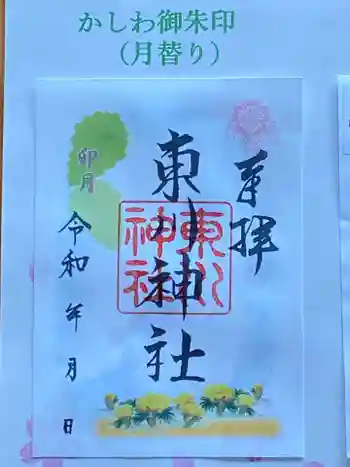 かしわ御朱印
（月替り）
奉拝
東川神社
東川神社
卯月
令和 年 月 日